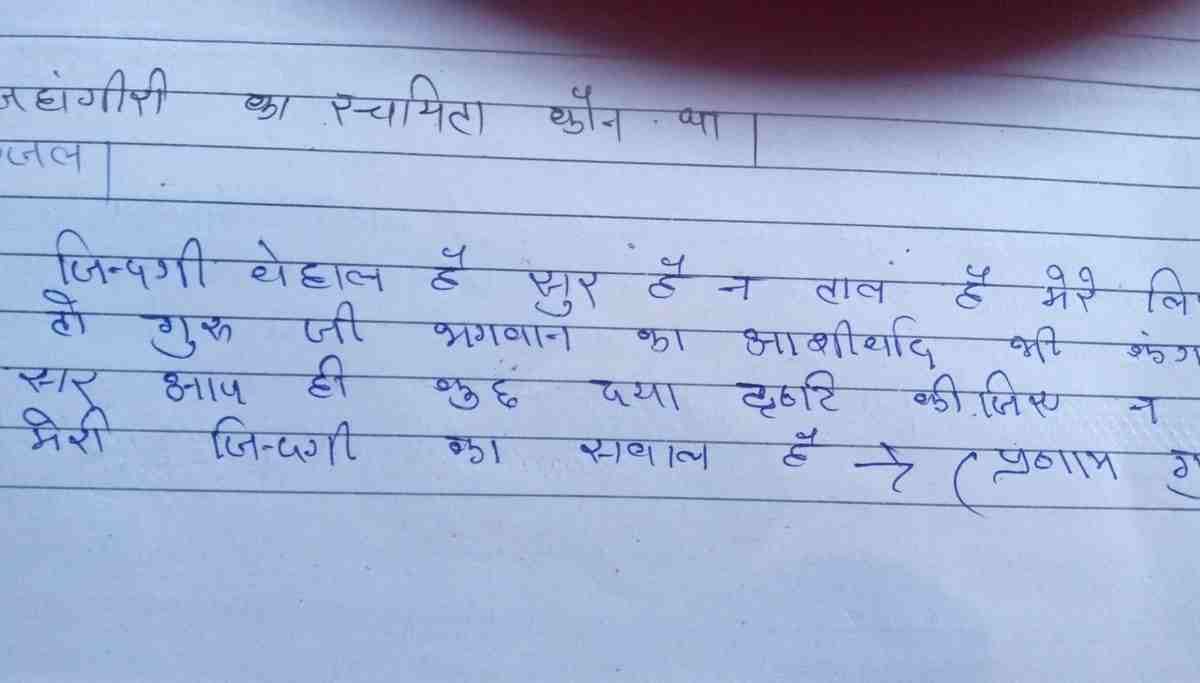 जहांगीरी का रचयिता कौन था |
जल |
जिन्दगी बेहाल है सुर है न ताल है मेरे लि
तो गुरू जी भगवान का आशीर्वाद भी कंग
सार आप ही कुछ दया दृष्टि कीजिए न
मेरी जिन्दगी का सवाल है → (प्रणाम गु